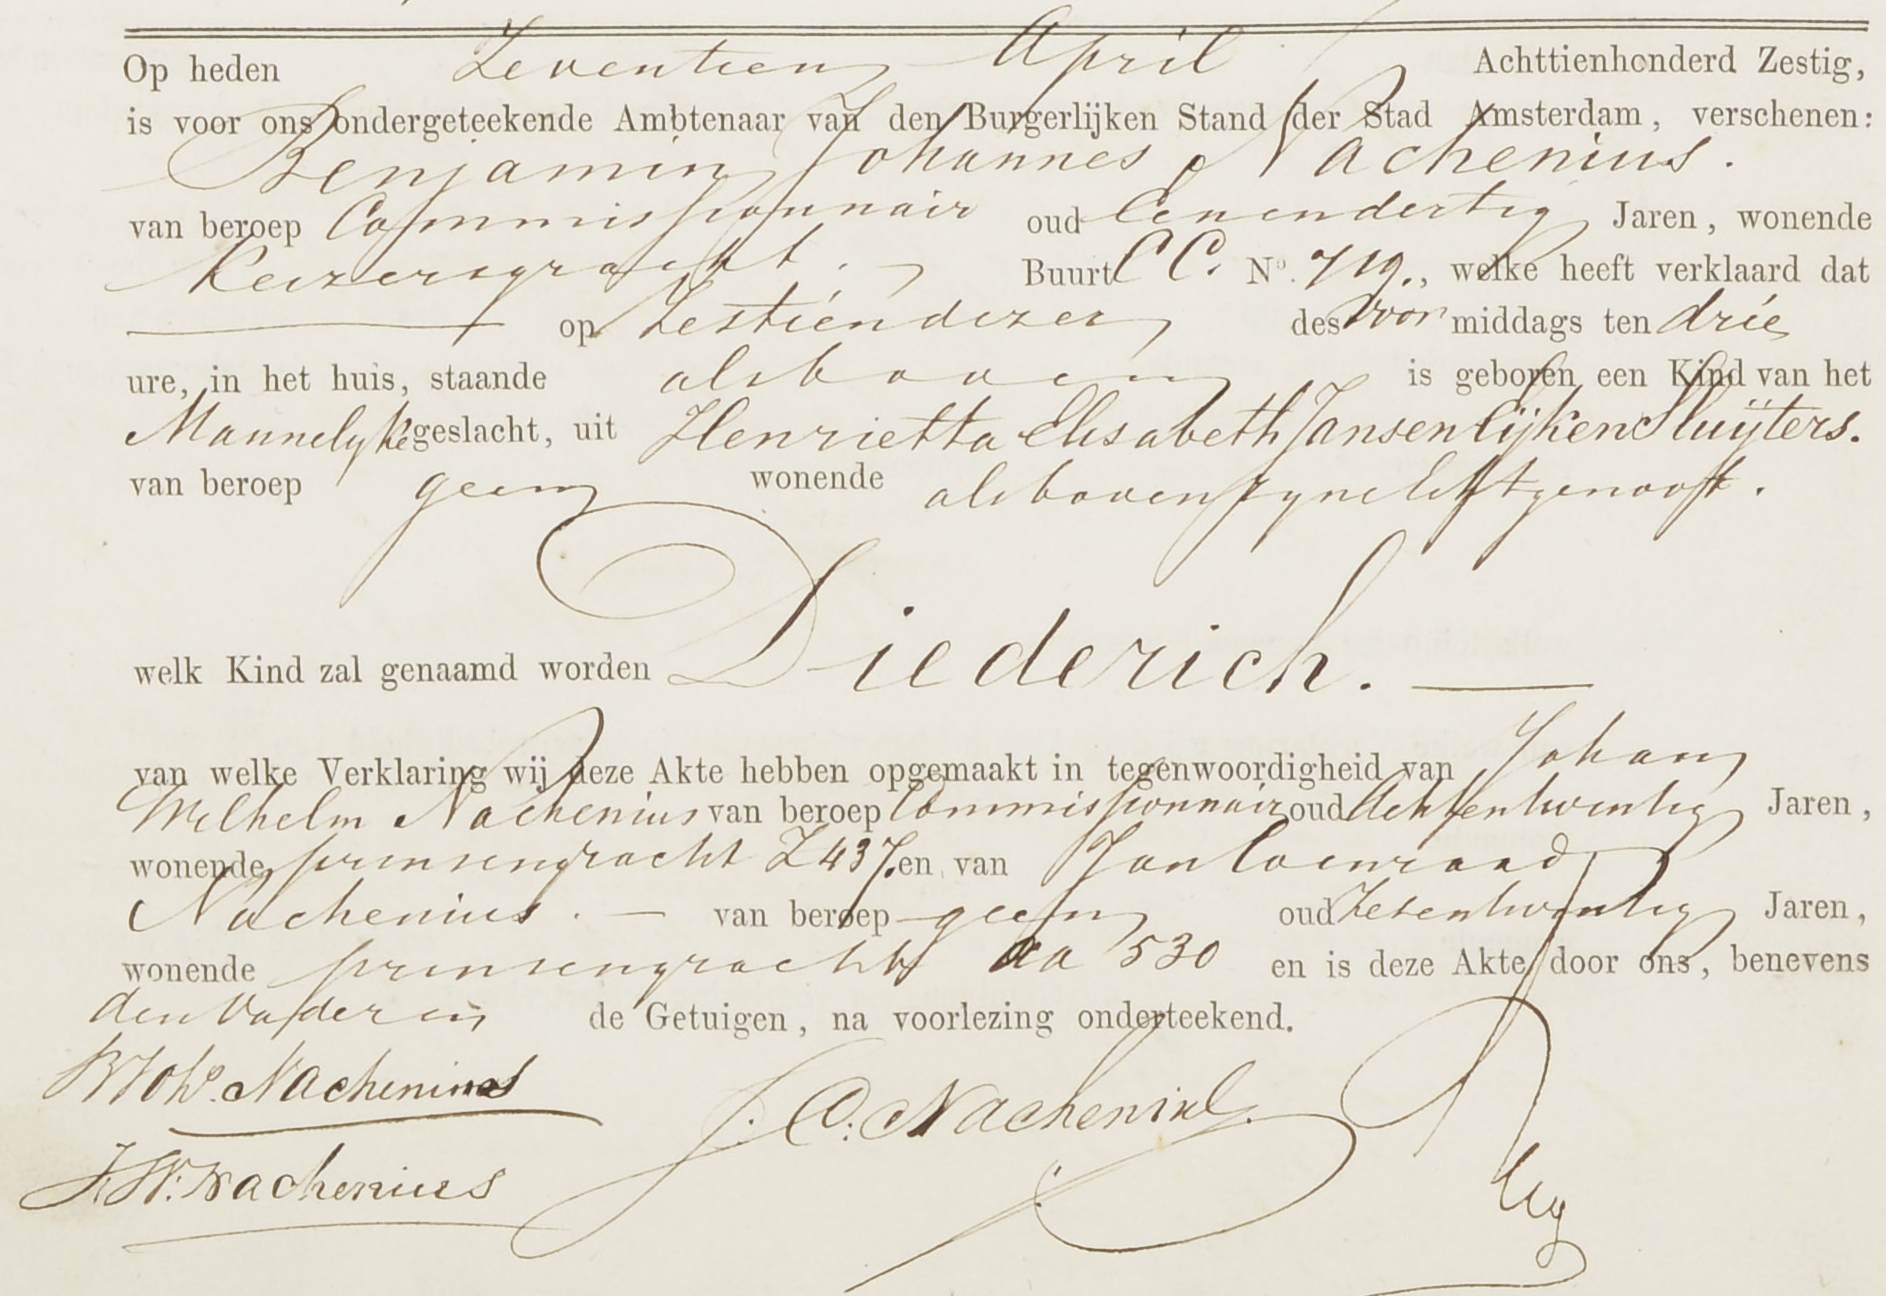 Op heden Zeventien April Achttienhonderd Zestig,
is voor ons ondergeteekende Ambtenaar van den Burgerlijken Stand der Stad Amsterdam, verschenen:
Benjamin Johannes Nachenius.
van beroep Commissionnair oud Eenendertig Jaren, wonende
Keizersgracht. Buurt CC. No. 719., welke heeft verklaard dat
op Zestien dezer des voor middags ten drie
ure, in het huis, staande als boven is geboren een Kind van het
Mannelyke geslacht, uit Henrietta Elisabeth Jansen Eijken Sluijters.
van beroep geen wonende als boven zyne Echtgenoot.
welk Kind zal genaamd worden Diederich.
van welke Verklaring wij deze Akte hebben opgemaakt in tegenwoordigheid van Johan
Wilhelm Nachenius van beroep Commissionnair oud Achtentwintig Jaren,
wonende prinsengracht Z 437. en van Jan Coenraad
Nachenius. van beroep geen oud Zesentwintig Jaren,
wonende prinsengracht aa 530 en is deze Akte door ons, benevens
den Vader en de Getuigen, na voorlezing onderteekend.
B Johs. Nachenius
J. C. Nachenius.
J. W. Nachenius